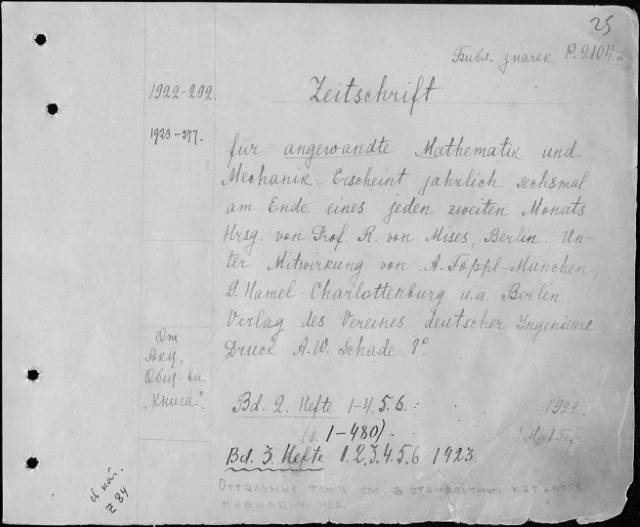 25
Библ. значек P.2104
1922-292.
Zeitschrift
1923-277.
für angewandte Mathematik und
Mechanik. Erscheint jährlich sechsmal
am Ende eines jeden zweiten Monats
Hrsg. von Prof. R. von Mises, Berlin. Un-
ter Mitwirkung von A. Föppl-München,
G. Hamel-Charlottenburg u.a. Berlin
Verlag des Vereines deutscher Ingenieure
Druck A.W. Schade 8°.
От
Акц.
Общ-ва
„Книга".
Bd. 2. Hefte 1-4.5.6. 1922.
(s. 1-480).
Bd. 3. Hefte 1.2.3.4.5.6 1923.
Остальные тома см. в стандартном каталоге
период. изд.
кат.
Z 84